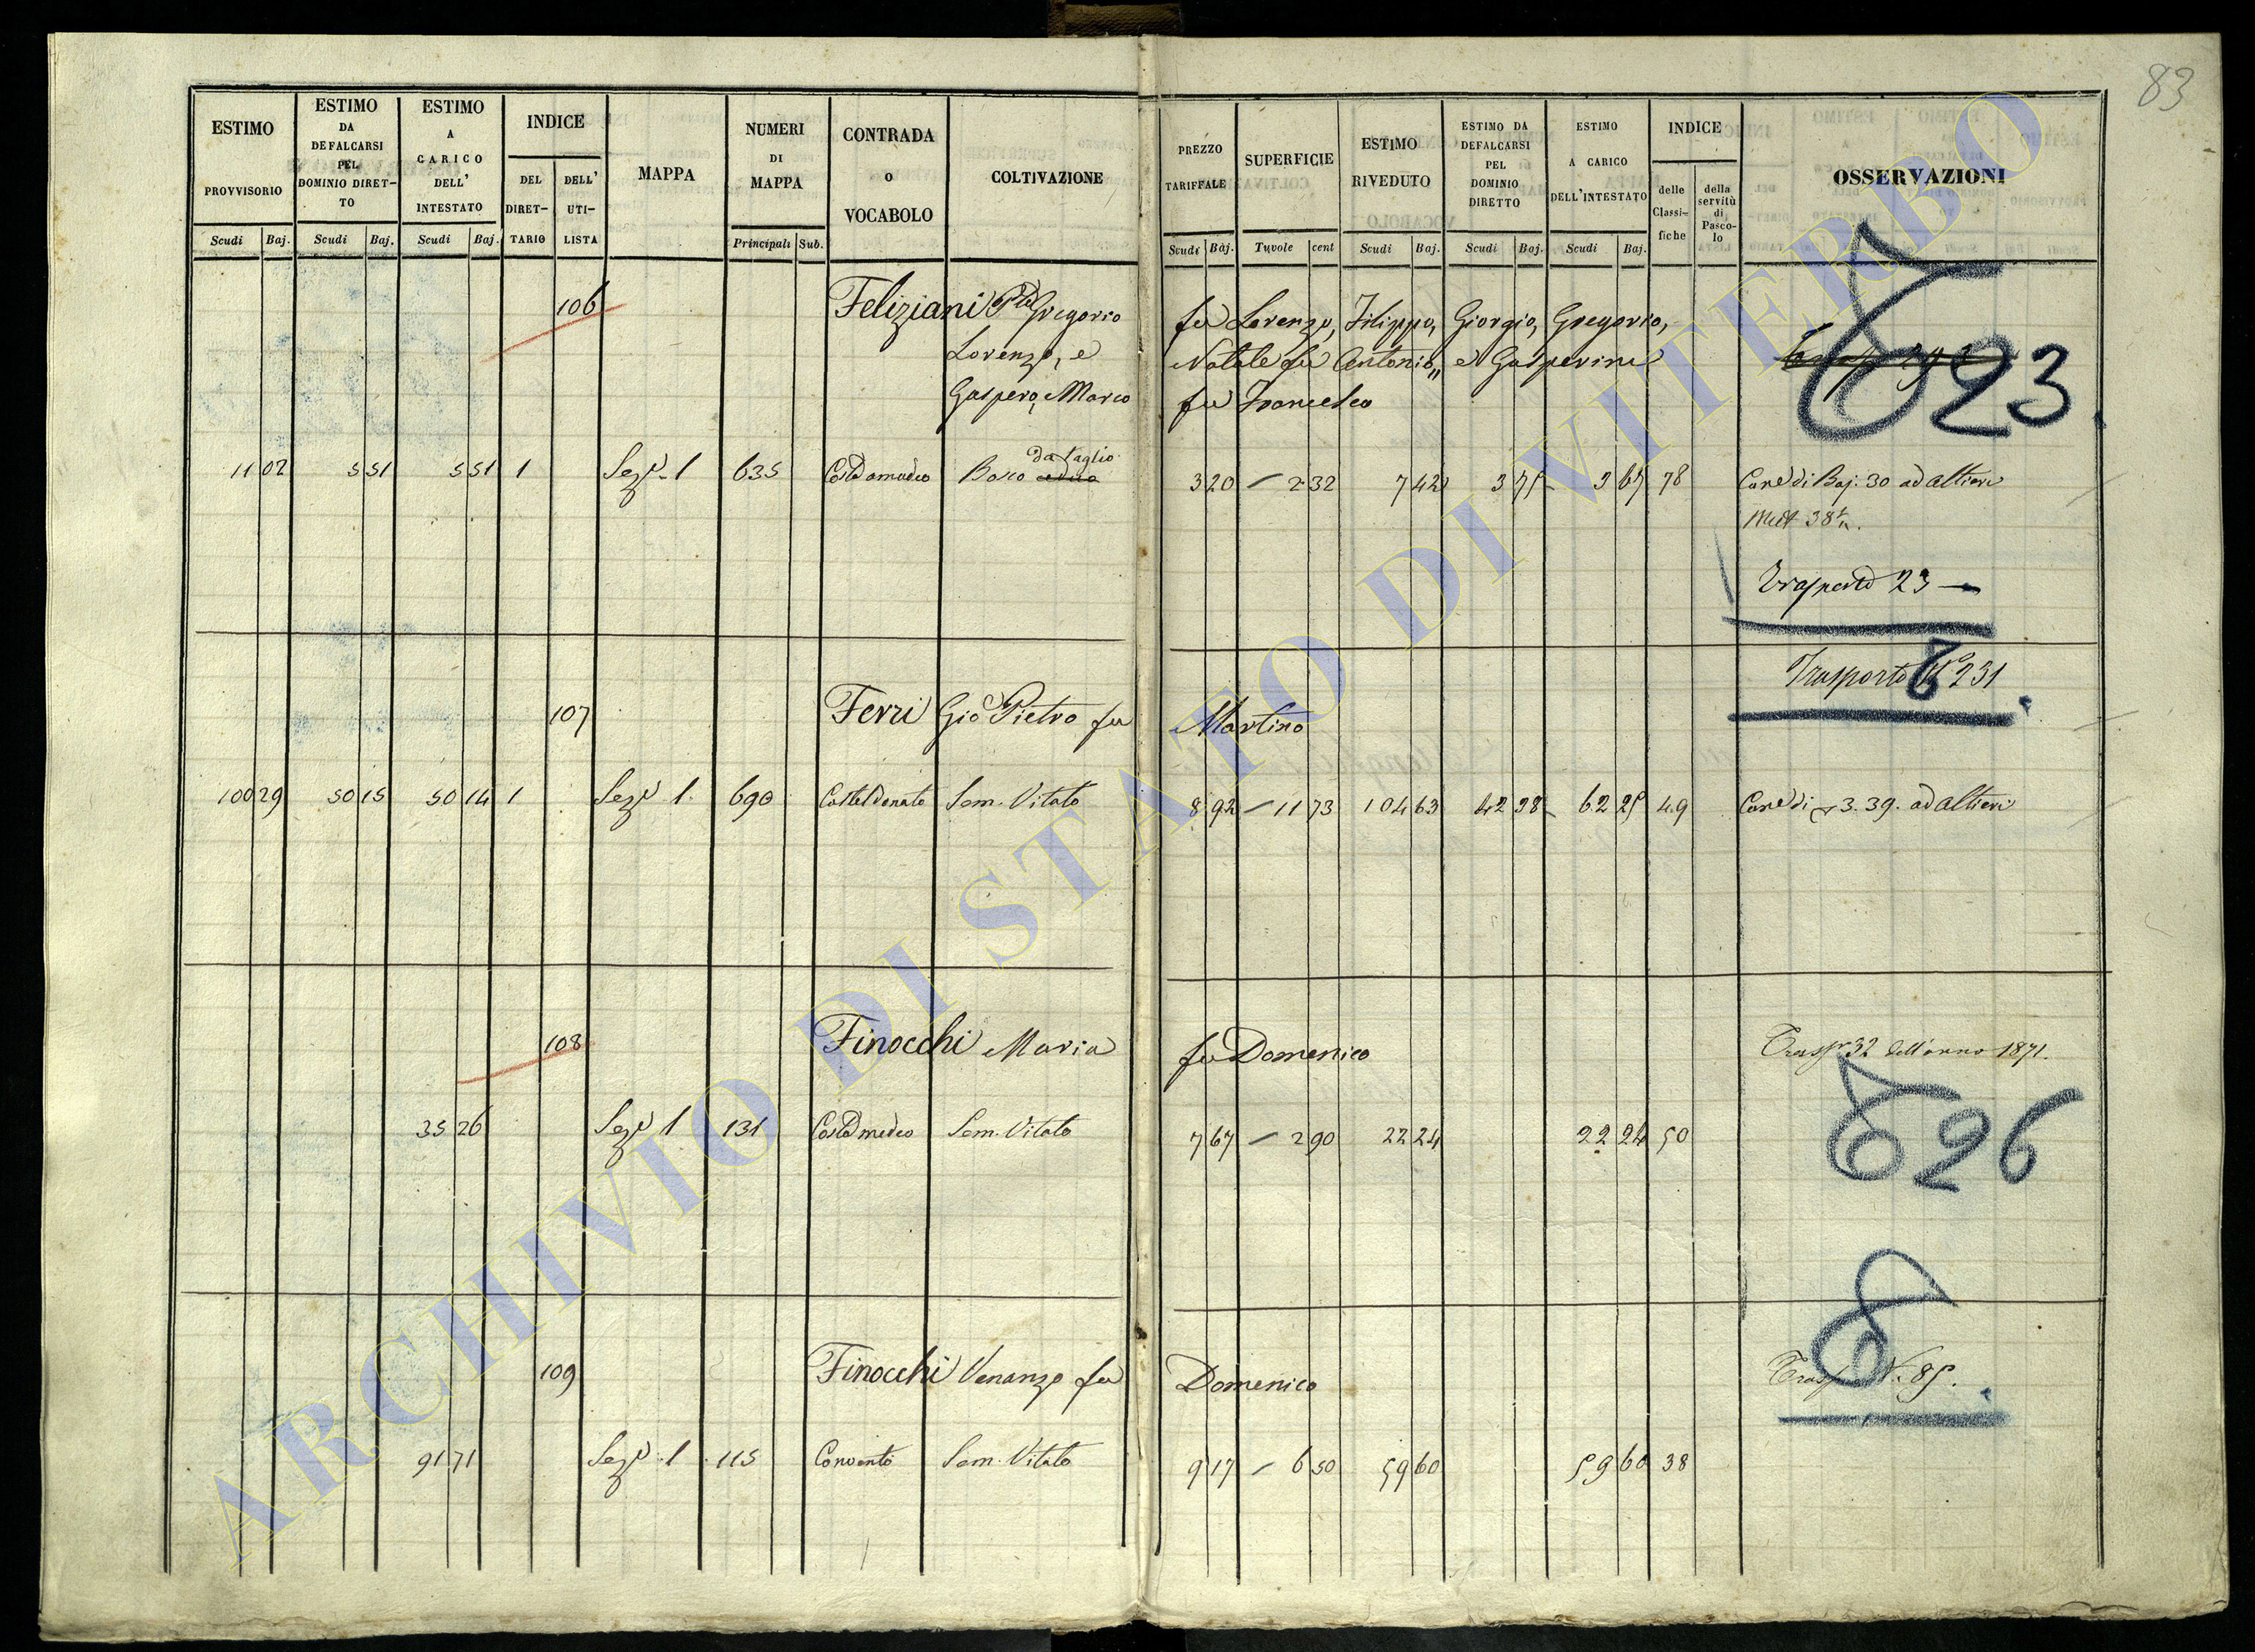 83
ESTIMO PROVVISORIO Scudi Baj.
ESTIMO DA DEFALCARSI PEL DOMINIO DIRET-TO Scudi Baj.
ESTIMO A CARICO DELL' INTESTATO Scudi Baj.
INDICE DEL DIRET-TARIO DELL' UTI-LISTA
MAPPA
NUMERI DI MAPPA Principali Sub.
CONTRADA O VOCABOLO
COLTIVAZIONE
PREZZO TARIFFALE Scudi Baj.
SUPERFICIE Tavole cent
ESTIMO RIVEDUTO Scudi Baj.
ESTIMO DA DEFALCARSI PEL DOMINIO DIRETTO Scudi Baj.
ESTIMO A CARICO DELL'INTESTATO Scudi Baj.
INDICE delle Classi-fiche della servitù di Pasco-lo
OSSERVAZIONI
106 Feliziani Gregorio fu Lorenzo, Filippo, Giorgio, Gregorio,
Lorenzo, e Natale fu Antonio, e Gasperino
Gaspero, e Marco fu Francesco
623.
11 02 5 51 5 51 1 Sezne 1 635 Bosco da taglio 3 20 2 32 7 42 3 75 3 67 78 Cane di Baj. 30 ad Altieri
Trasporto 23
107 Ferri Gio Pietro fu Martino Trasporto N° 231
100 29 50 15 50 14 1 Sezne 1 690 Casteldonato Sem. Vitato 8 92 11 73 104 63 42 38 62 25 49 Cane di 3.39. ad Altieri
108 Finocchi Maria fu Domenico Trasp 32 dell'anno 1871.
626
35 26 Sezne 1 131 Sem. Vitato 7 67 2 90 22 24 22 24 50
109 Finocchi Venanzo fu Domenico Trasp N. 85.
8
91 71 Sezne 1 115 Convento Sem. Vitato 9 17 6 50 59 60 59 60 38
ARCHIVIO DI STATO DI VITERBO